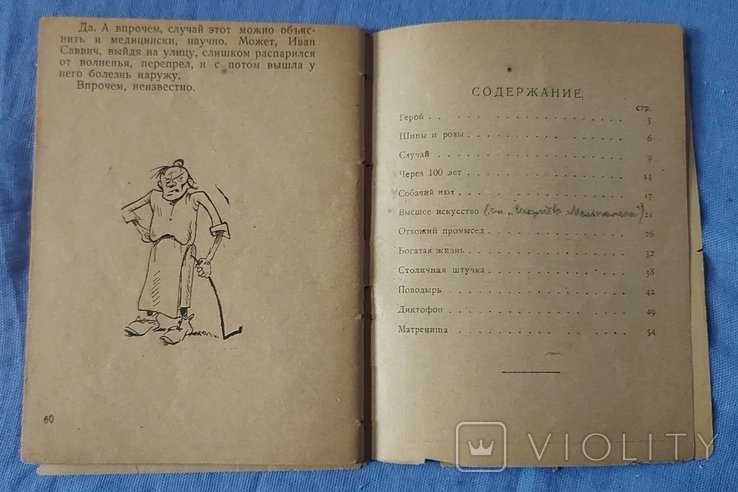 Да. А впрочем, случай этот можно объяс-
нить и медицински, научно. Может, Иван
Саввич, выйдя на улицу, слишком распарился
от волненья, перепрел, и с потом вышла у
него болезнь наружу.
Впрочем, неизвестно.
60
СОДЕРЖАНИЕ.
стр.
Герой 3
Шипы и розы 6
Случай 9
Через 100 лет 13
Собачий нюх 17
Высшее искусство (см. „Искусство Мельпомены") 21
Отхожий промысел 26
Богатая жизнь 32
Столичная штучка 38
Поводырь 42
Диктофон 49
Матренища 54
VIOLITY